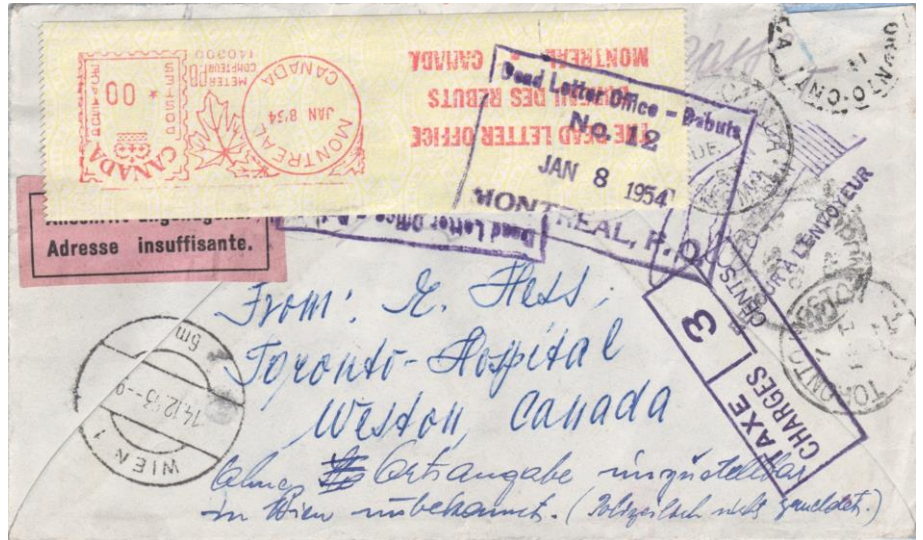 CANADA
POSTES POSTAGE
00
METER
COMPTEUR
PB
140300
MONTREAL
JAN 8'54
CANADA
THE DEAD LETTER OFFICE
BUREAU DES REBUTS
MONTREAL CANADA
Dead Letter Office - Rebuts
No. 12
JAN 8 1954
MONTREAL, P.Q.
Dead Letter Office
TORONTO·ONT
Adresse insuffisante.
CENTS
R À L'ENVOYEUR
3
TAXE
CHARGES
TORONTO
WIEN 1
14.12.53.-9
5m
From: E. Hess,
Toronto-Hospital
Weston, Canada
Ohne Ortsangabe unzustellbar
in Wien unbekannt. (Polizeilich nicht gemeldet.)